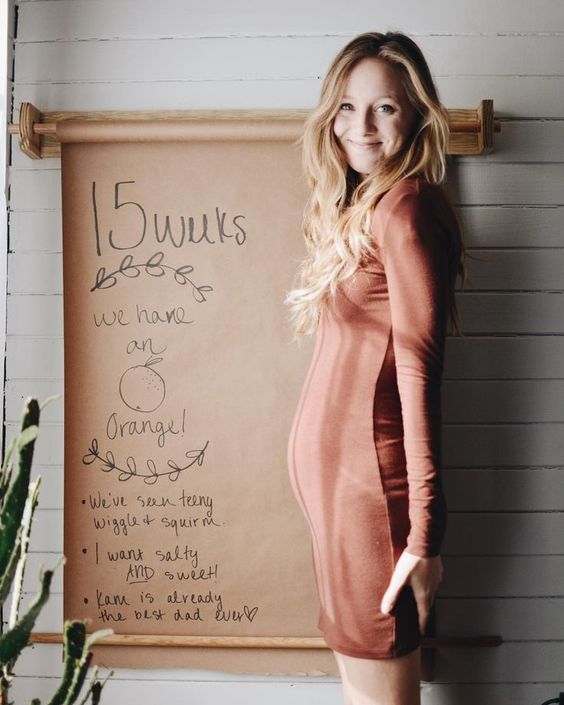 15 weeks
We have
an
Orange!
• We've seen teeny
wiggle & squirm.
• I want salty
AND sweet!
• Kam is already
the best dad ever♡